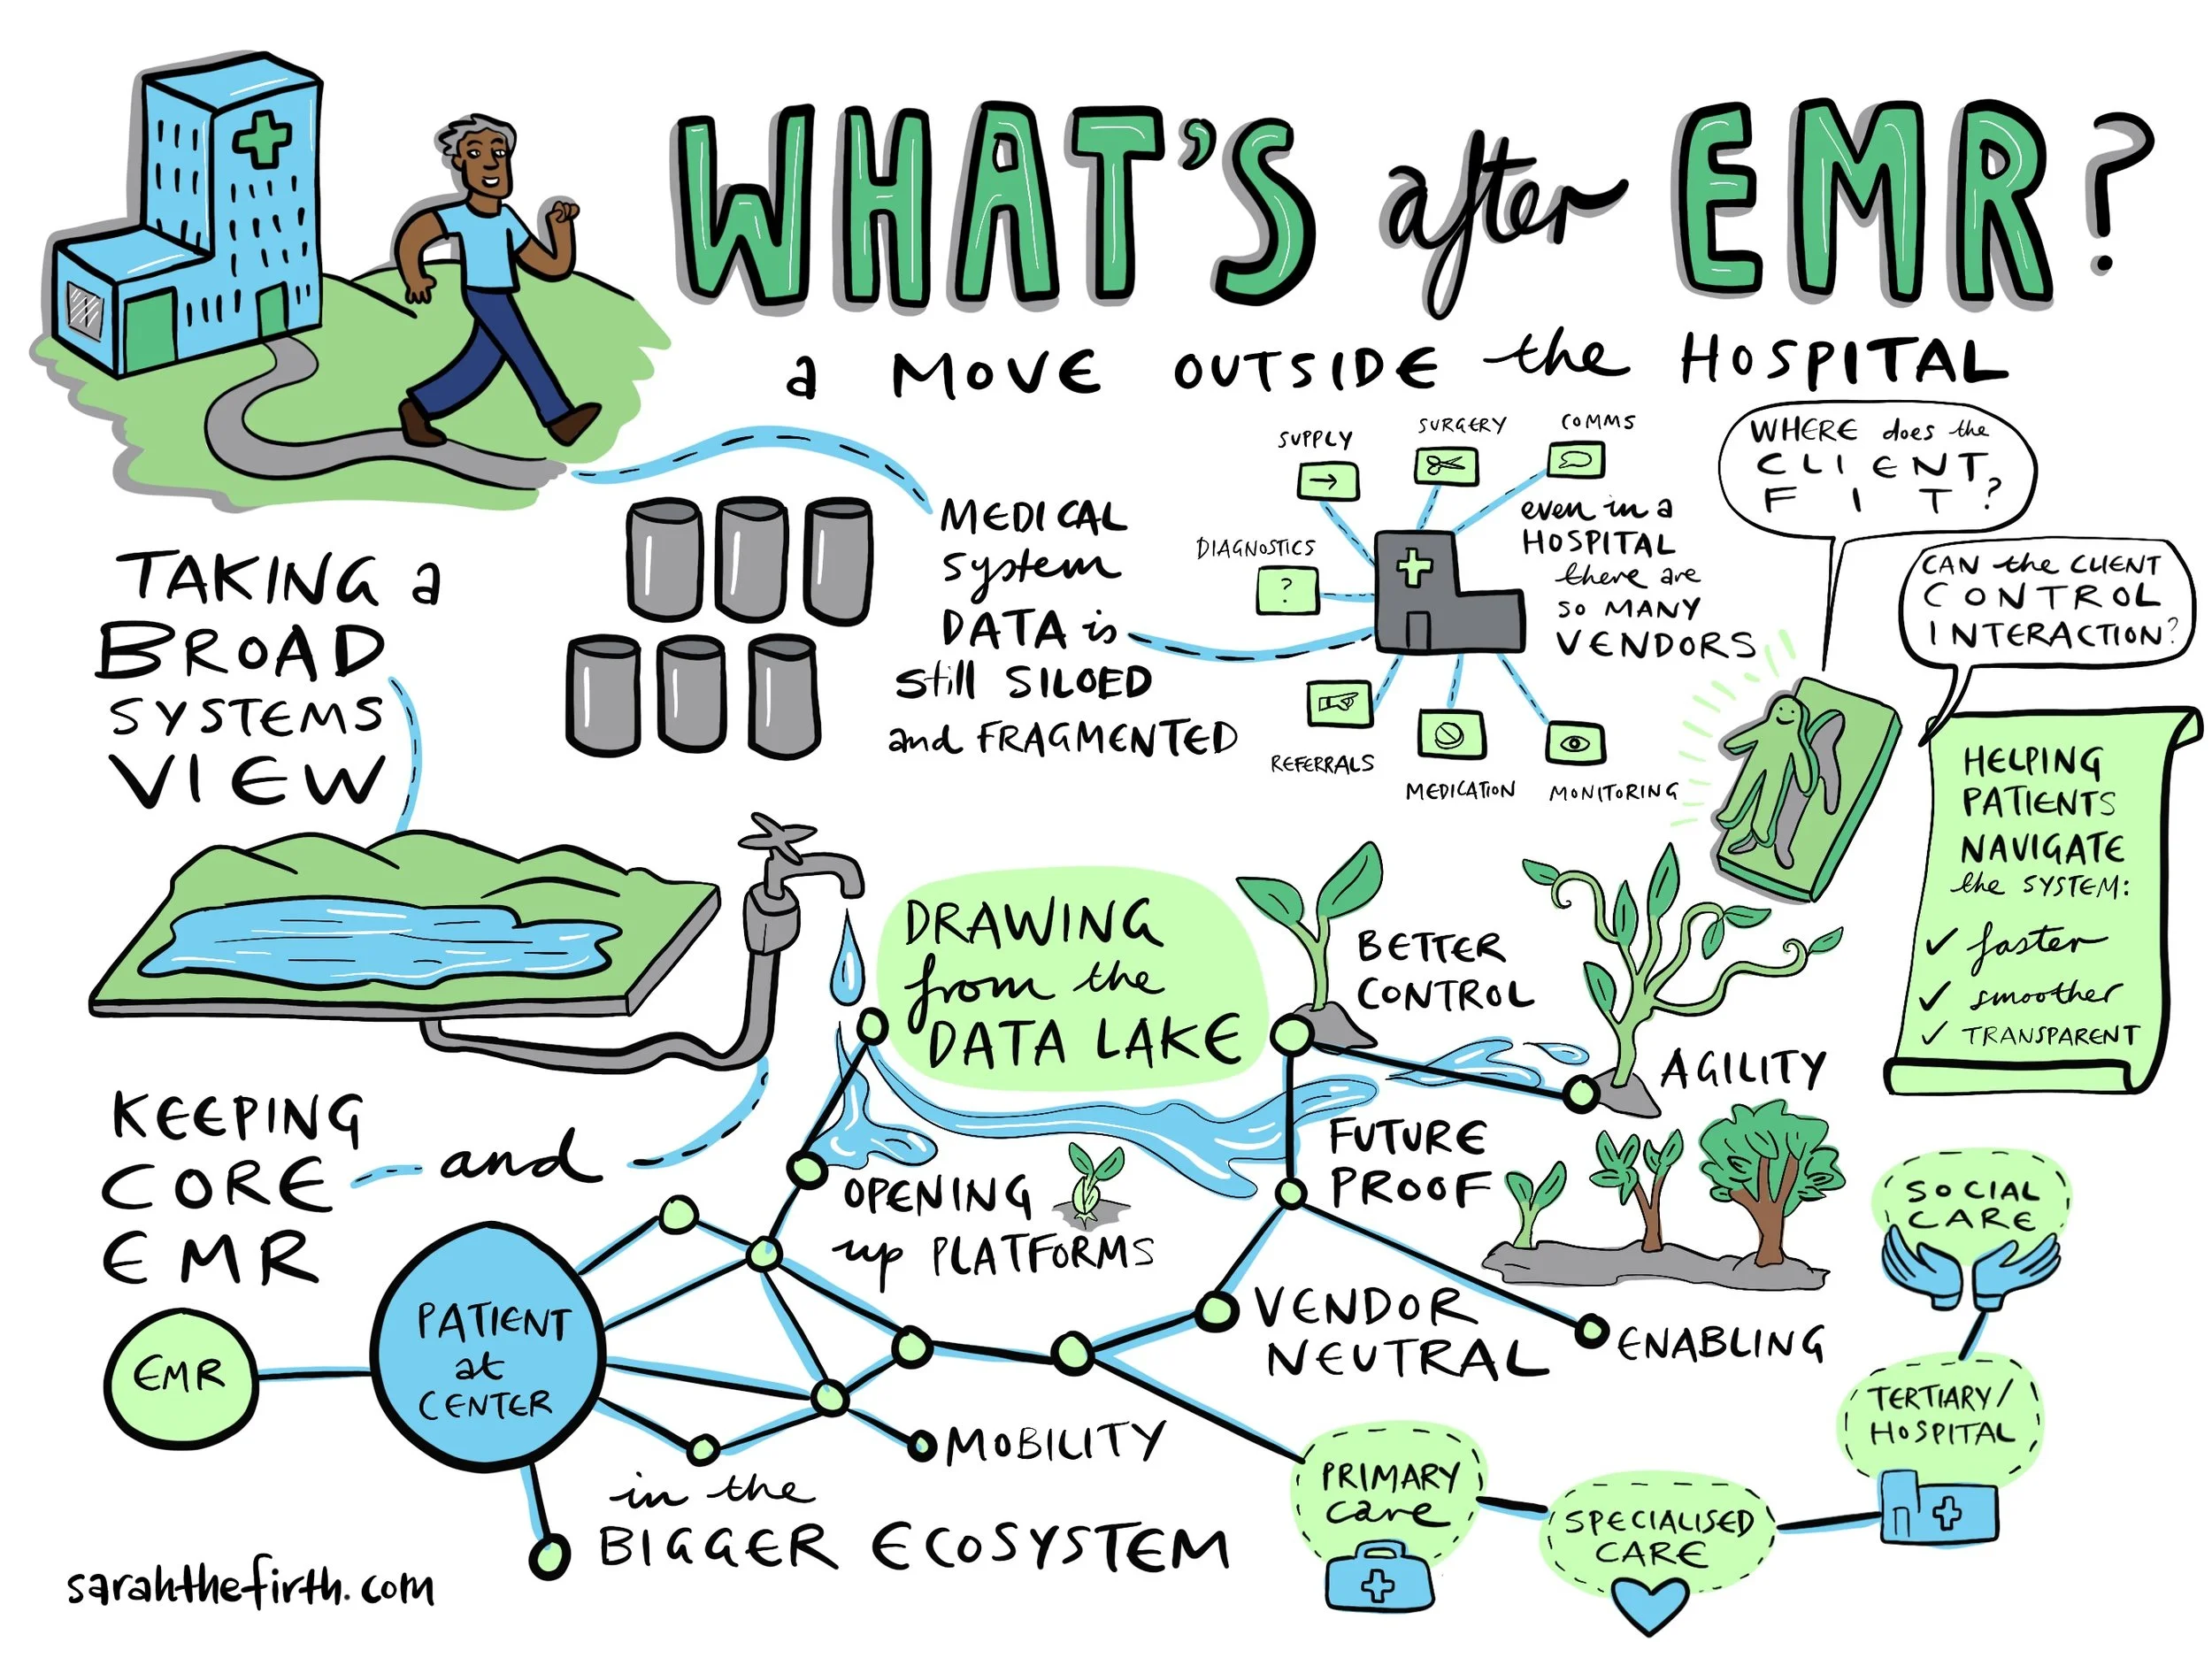 WHAT'S after EMR?
a MOVE OUTSIDE the HOSPITAL
TAKING a
BROAD
SYSTEMS
VIEW
MEDICAL
system
DATA is
still SILOED
and FRAGMENTED
SUPPLY
SURGERY
COMMS
DIAGNOSTICS
?
REFERRALS
MEDICATION
MONITORING
even in a
HOSPITAL
there are
SO MANY
VENDORS
WHERE does the
CLIENT
FIT?
CAN the CLIENT
CONTROL
INTERACTION?
HELPING
PATIENTS
NAVIGATE
the SYSTEM:
✓ faster
✓ smoother
✓ TRANSPARENT
DRAWING
from the
DATA LAKE
BETTER
CONTROL
AGILITY
FUTURE
PROOF
KEEPING
CORE
EMR
and
OPENING
up PLATFORMS
EMR
PATIENT
at
CENTER
VENDOR
NEUTRAL
ENABLING
MOBILITY
in the
BIGGER ECOSYSTEM
PRIMARY
care
SPECIALISED
CARE
TERTIARY/
HOSPITAL
SOCIAL
CARE
sarahthefirth.com